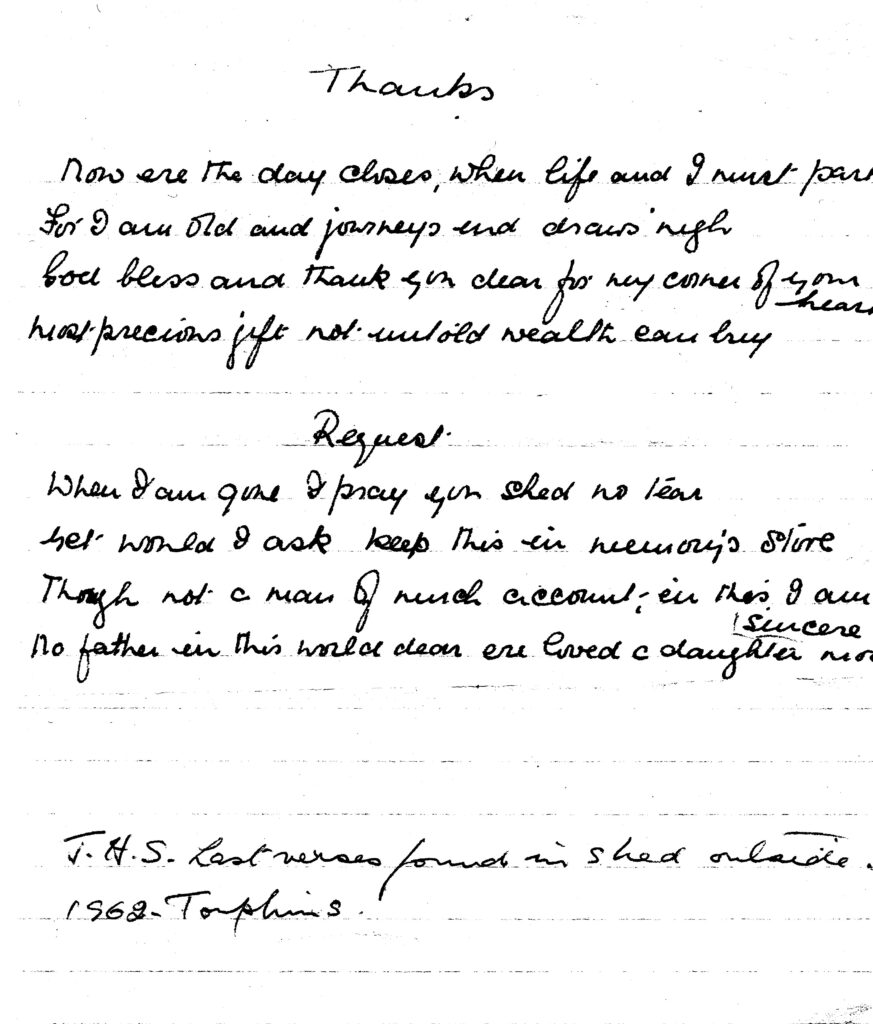 Thanks
Now ere the day closes, when life and I must par
For I am old and journeys end draws nigh
God bless and thank you dear for my corner of your
hear
most precious gift not untold wealth can buy
Request
When I am gone I pray you shed no tear
Yet would I ask keep this in memory's store
Though not a man of much account, in this I am
sincere
No father in this world dear ere loved a daughter mo
J.H.S. Last verses found in shed outside.